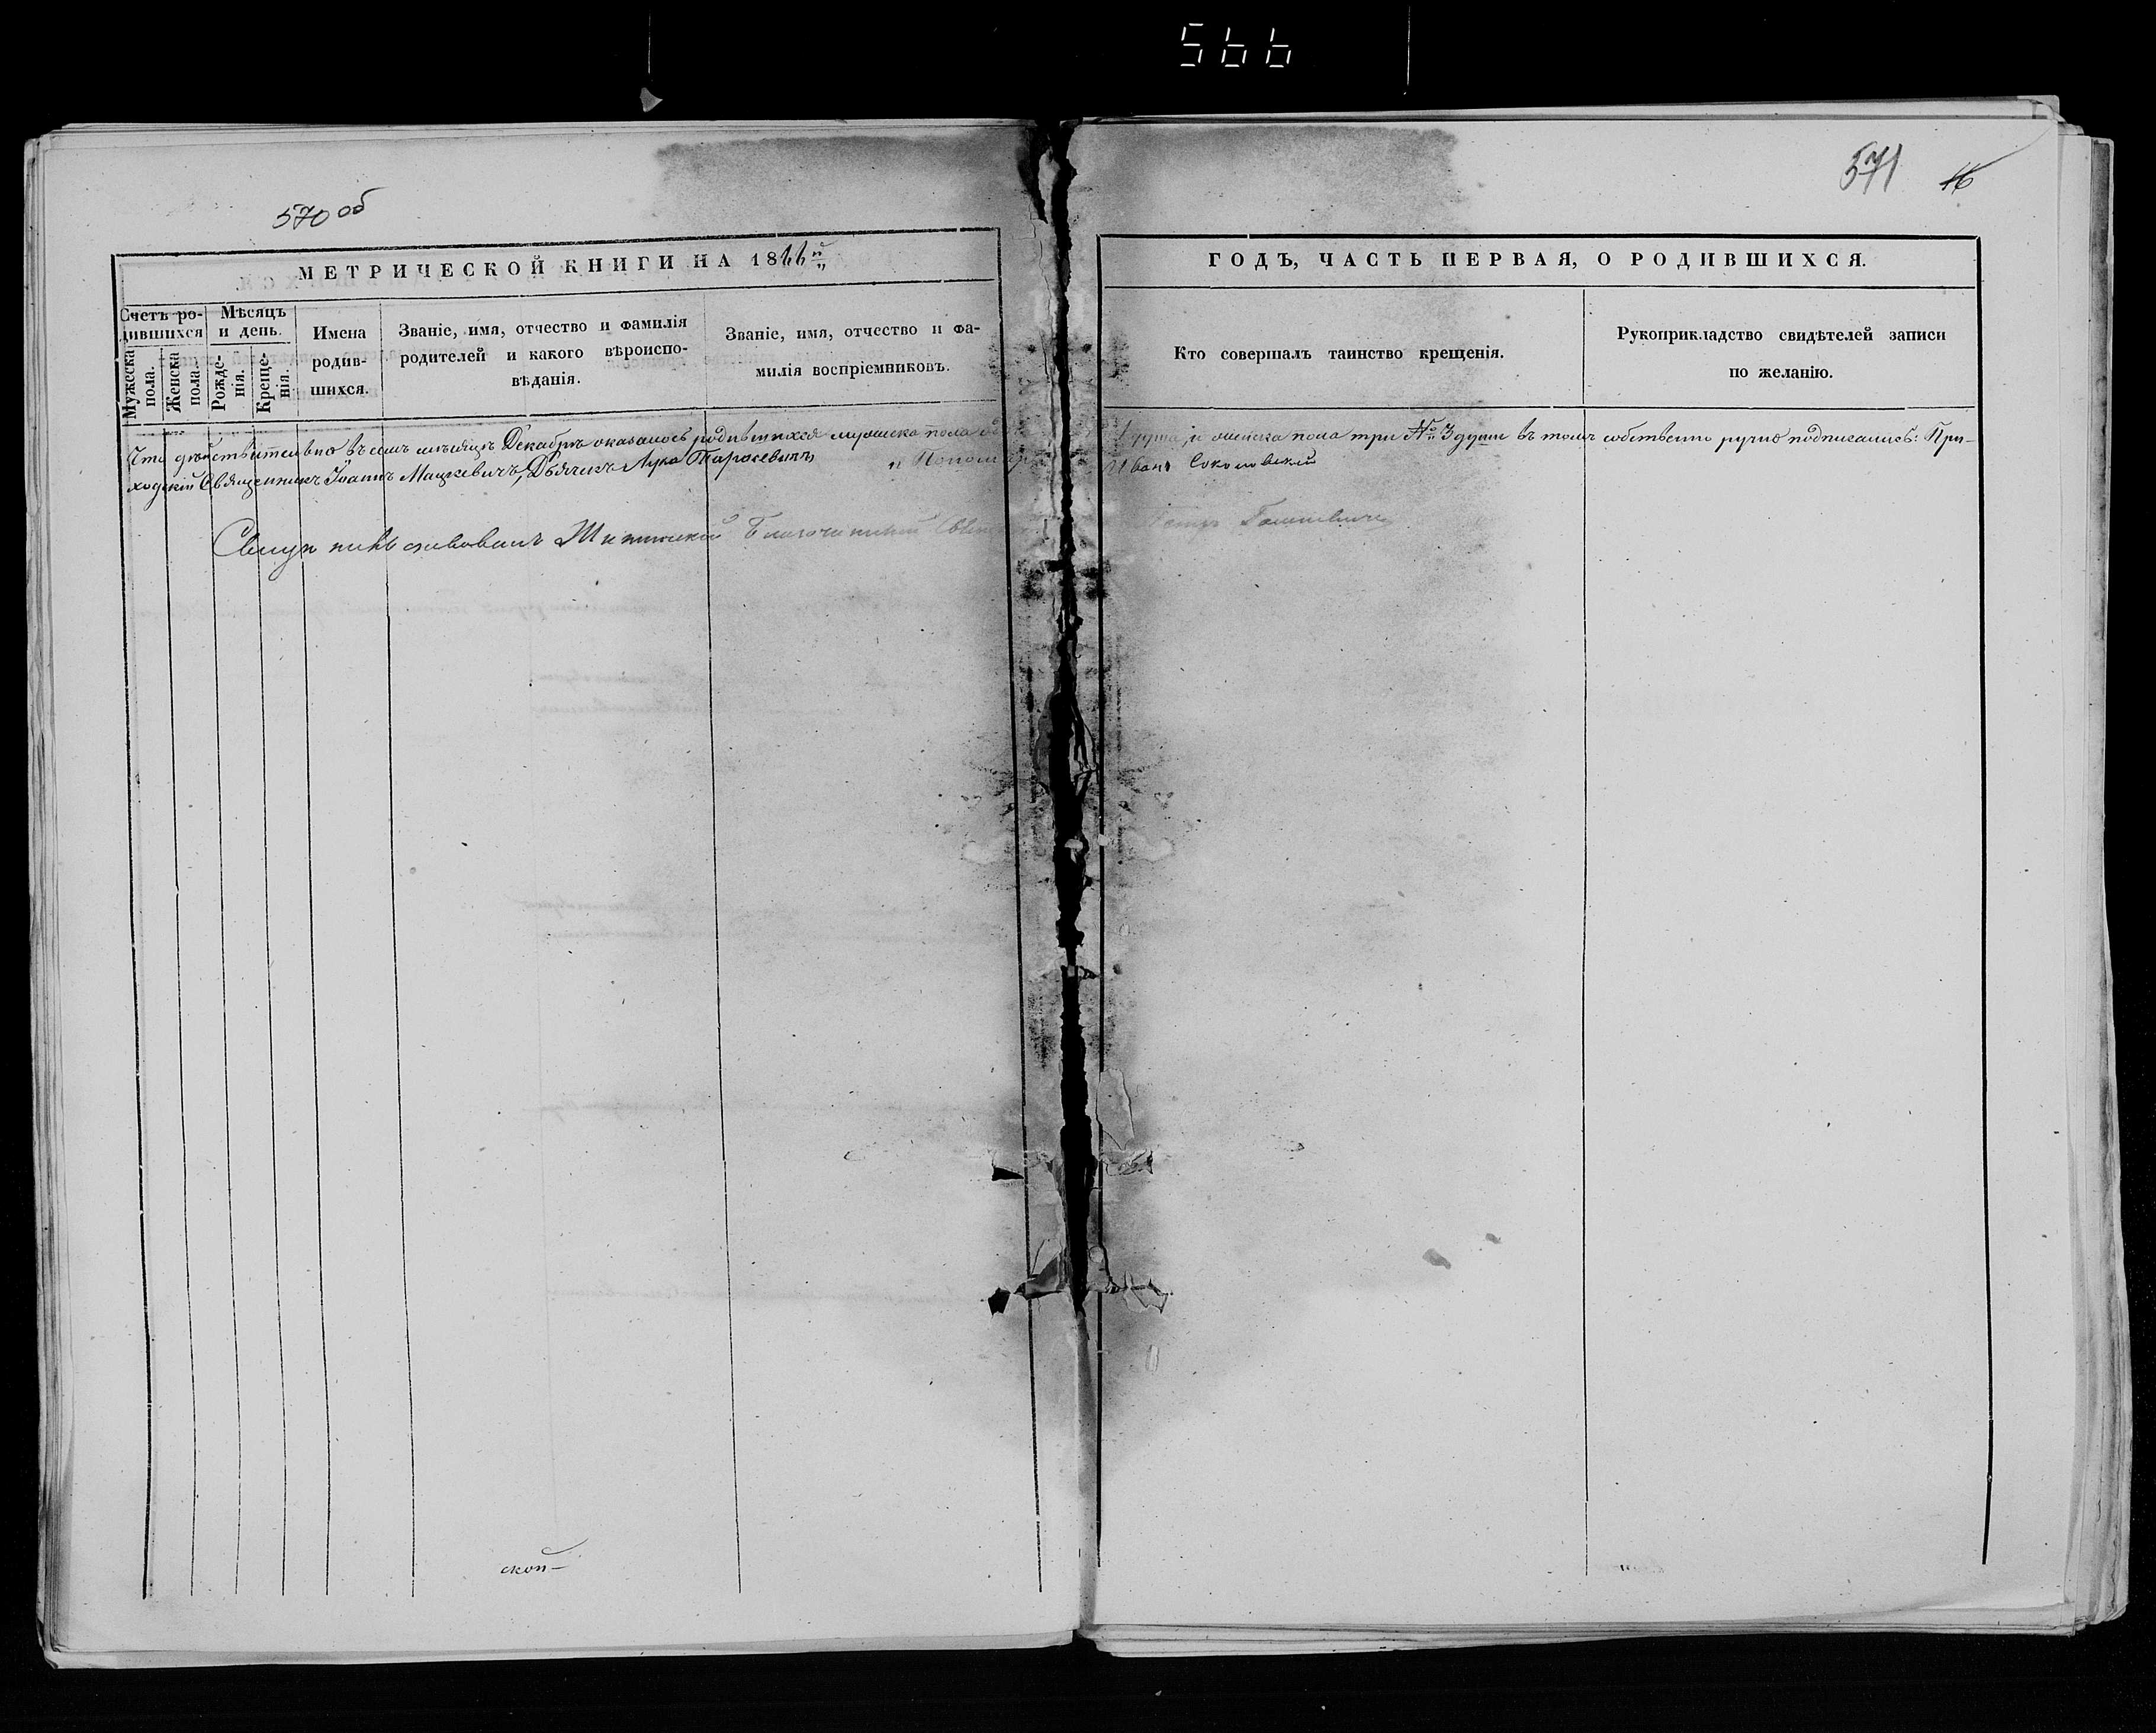 566
570 об
571 16
МЕТРИЧЕСКОЙ КНИГИ НА 1866й
ГОДЪ, ЧАСТЬ ПЕРВАЯ, О РОДИВШИХСЯ.
Счетъ родившихся
Мужеска пола.
Женска пола.
Мѣсяцъ и день.
Рожденія.
Крещенія.
Имена родившихся.
Званіе, имя, отчество и фамилія
родителей и какого вѣроиспо-
вѣданія.
Званіе, имя, отчество и фа-
милія воспріемниковъ.
Кто совершалъ таинство крещенія.
Рукоприкладство свидѣтелей записи
по желанію.
Что дѣйствительно въ семъ мѣсяцѣ Декабрѣ оказалось родившихся мужеска пола душа, и женска пола три № 3 души въ томъ собственно ручно подписались: При-
ходскій Священникъ Іоаннъ Мацкевичъ, Дьячекъ Лука Тарасевичъ и Пономарь Иванъ Соколовскій
свидѣтельствовалъ Благочинный Петръ
скоп-